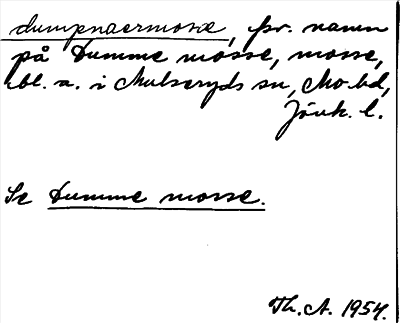 dumpnaermosse, fsv. namn
på Dumme mosse, mosse,
bl. a. i Mulseryds sn, Mo hd,
Jönk. l.
Se Dumme mosse.
Th. A. 1954.